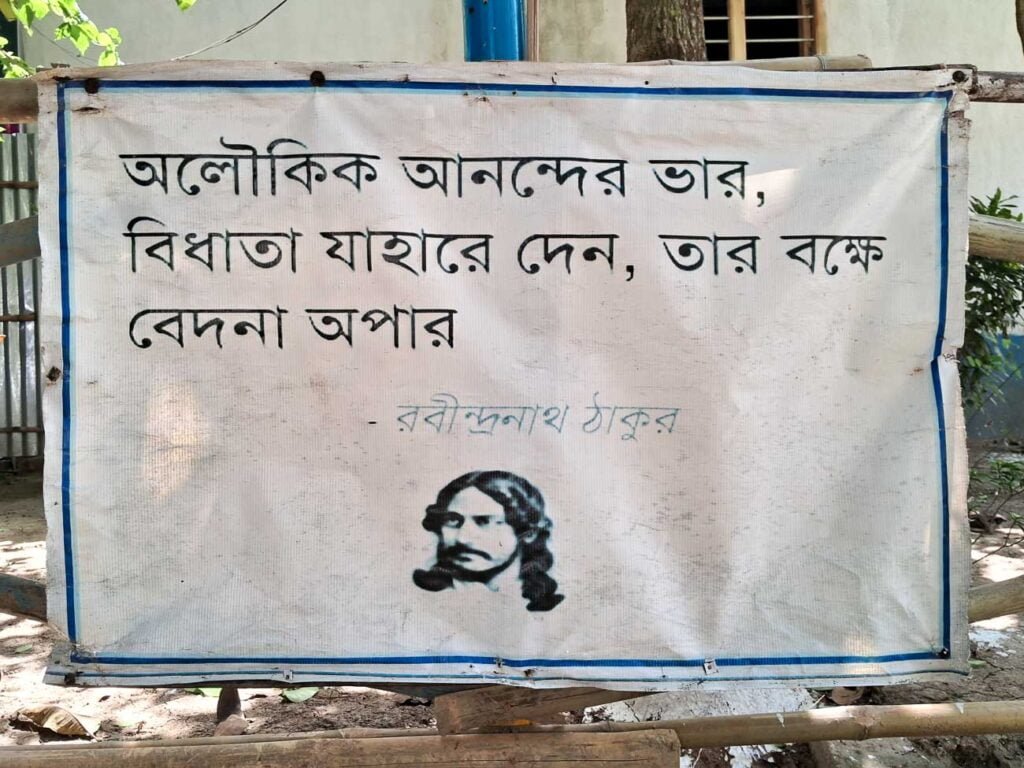 অলৌকিক আনন্দের ভার,
বিধাতা যাহারে দেন, তার বক্ষে
বেদনা অপার
রবীন্দ্রনাথ ঠাকুর